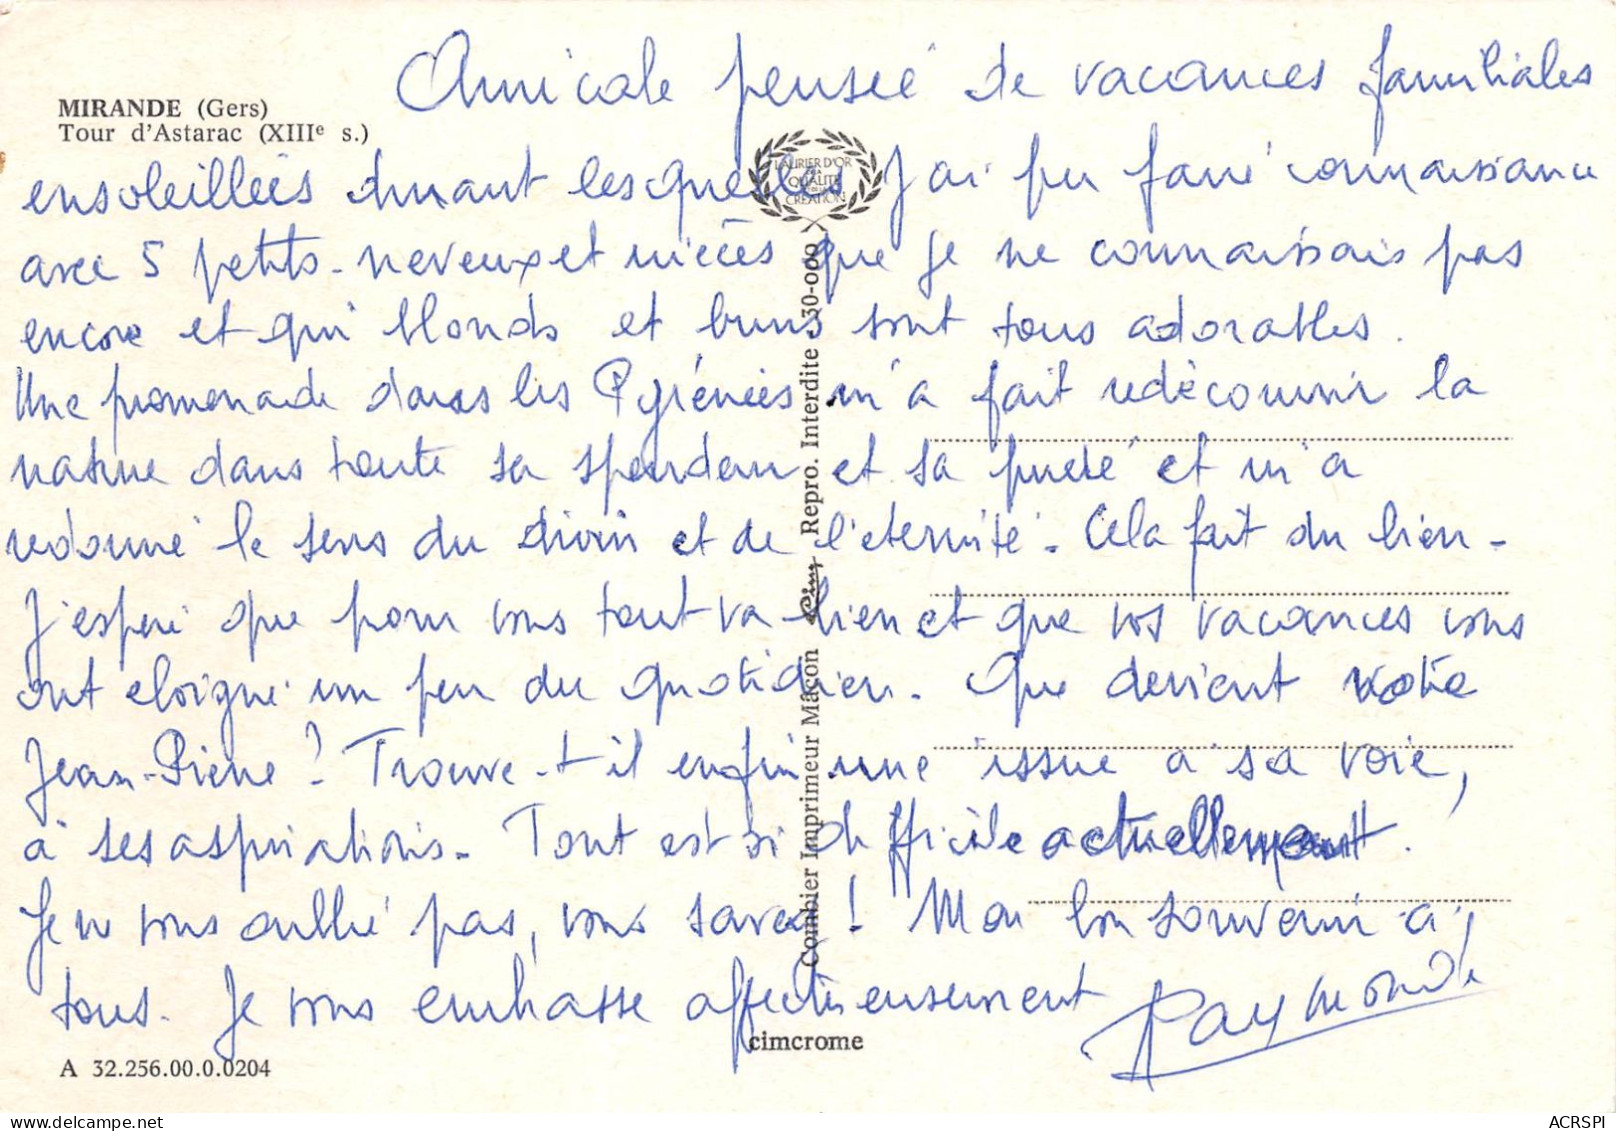 MIRANDE (Gers)
Tour d'Astarac (XIIIe s.)
Amicale pensée de vacances familiales
ensoleillées durant lesquelles j'ai pu faire connaissance
avec 5 petits-neveux et nièces que je ne connaissais pas
encore et qui blonds et bruns sont tous adorables.
Une promenade dans les Pyrénées m'a fait redécouvrir la
nature dans toute sa splendeur et sa pureté et m'a
redonné le sens du divin et de l'éternité. Cela fait du bien.
J'espère que pour vous tout va bien et que vos vacances vous
ont éloigné un peu du quotidien. Que devient votre
Jean-Pierre ? Trouve-t-il enfin une issue à sa voie,
à ses aspirations. Tout est si difficile actuellement.
Je ne vous oublie pas, vous savez ! Mon bon souvenir à
tous. Je vous embrasse affectueusement
Raymonde
LAURIER D'OR
DE LA
QUALITÉ
DE LA
CRÉATION
Combier Imprimeur Mâcon Cim Repro. Interdite 30-000
cimcrome
A 32.256.00.0.0204
ACRSPI